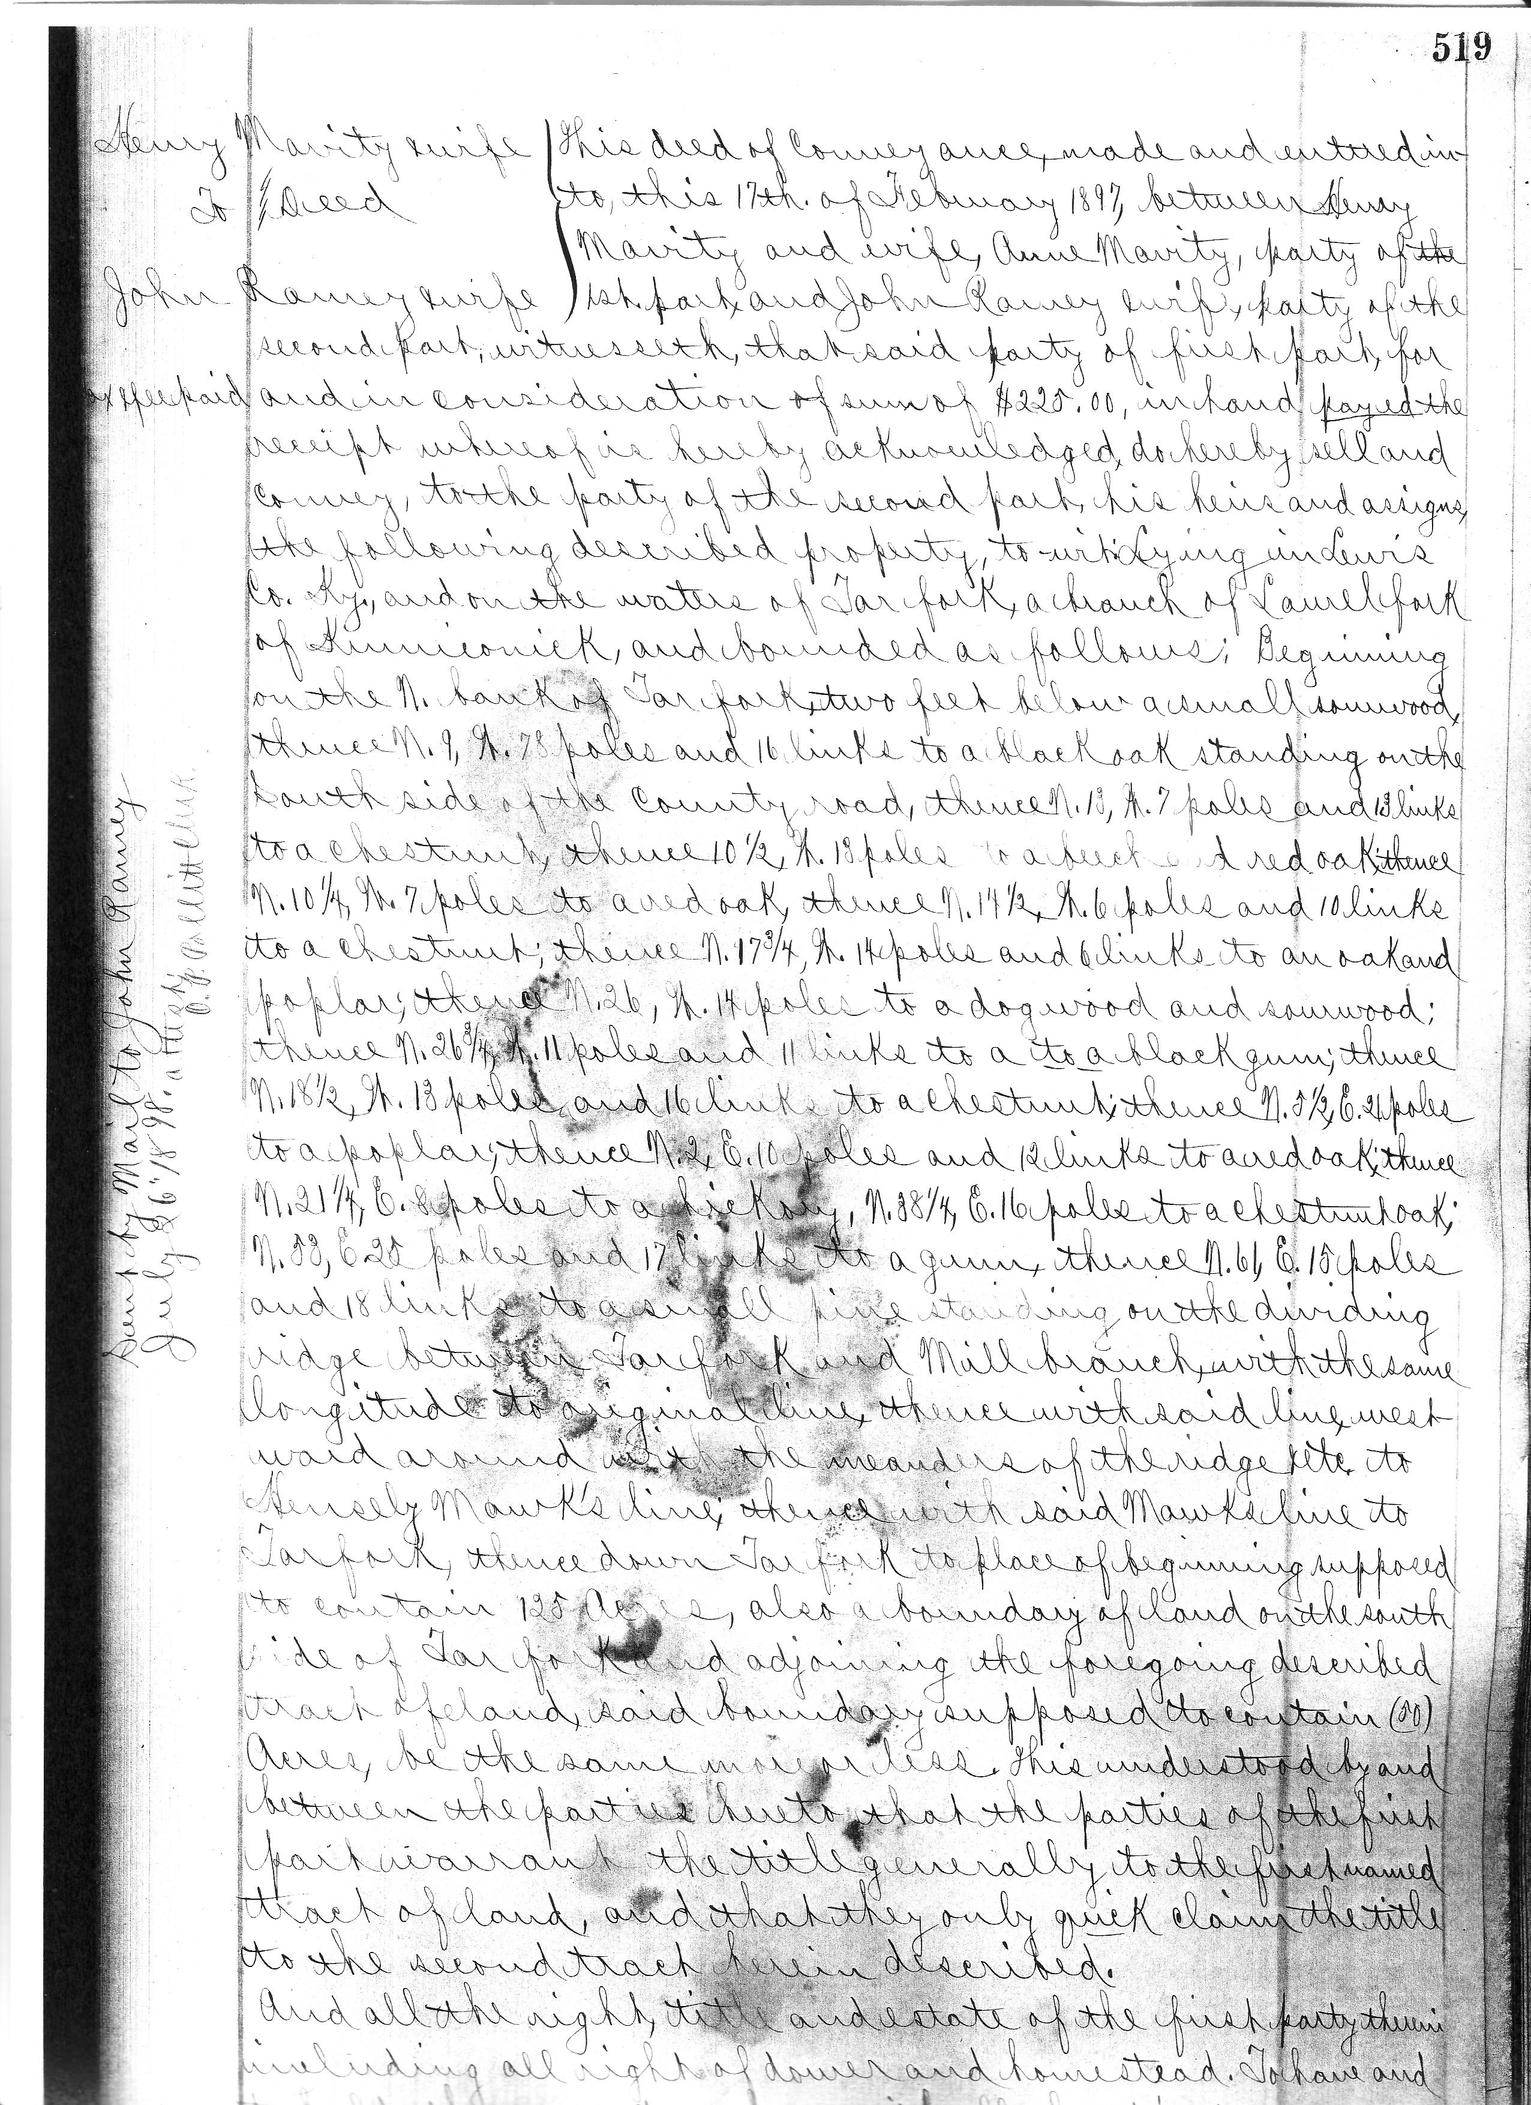 519
Henry Mavity & wife
To // Deed
John Ramey & wife
This deed of Conveyance, made and entered in
to, this 17th. of February 1897, between Henry
Mavity and wife, Anne Mavity, party of the
1st. part, and John Ramey & wife, party of the
second part, witnesseth, that said party of first part, for
tax & fee paid
and in consideration of sum of $225.00, in hand payed the
receipt whereof is hereby acknowledged, do hereby sell and
convey, to the party of the second part, his heirs and assigns,
the following described property, to-wit: Lying in Lewis
Co. Ky., and on the waters of Tar fork, a branch of Laurel fork
of Kinniconick, and bounded as follows; Beginning
on the N. bank of Tar fork, two feet below a small sourwood,
thence N. 9, W. 78 poles and 16 links to a black oak standing on the
South side of the County road, thence N. 13, W. 7 poles and 13 links
to a chestnut, thence 10 1/2, W. 13 poles to a beech and red oak; thence
N. 10 1/4, W. 7 poles to a red oak, thence N. 14 1/2, W. 6 poles and 10 links
to a chestnut; thence N. 17 3/4, W. 14 poles and 6 links to an oak and
poplar; thence N. 26, W. 14 poles to a dogwood and sourwood;
thence N. 26 3/4, W. 11 poles and 11 links to a to a black gum; thence
N. 18 1/2, W. 13 poles and 16 links to a chestnut; thence N. 5 1/2, E. 21 poles
to a poplar; thence N. 2, E. 10 poles and 12 links to a red oak; thence
N. 21 1/4, E. 8 poles to a hickory, N. 38 1/4, E. 16 poles to a chestnut oak;
N. 53, E 25 poles and 17 links to a gum, thence N. 61, E. 15 poles
and 18 links to a small pine standing on the dividing
ridge between Tar fork and Mill branch, with the same
longitude to original line, thence with said line, west
ward around with the meanders of the ridge &etc. to
Hensely Mawk's line; thence with said Mawks line to
Tar fork, thence down Tar fork to place of beginning supposed
to contain 125 Acres, also a boundary of land on the south
side of Tar fork and adjoining the foregoing described
tract of land, said boundary supposed to contain (50)
Acres, be the same more or less. This understood by and
between the parties hereto, that the parties of the first
part warrant the title generally to the first named
tract of land, and that they only quick claim the title
to the second tract herein described.
And all the right, title and estate of the first party therein
including all right of dower and homestead. To have and
Sent by Mail to John Ramey
July 26" 1898. attest